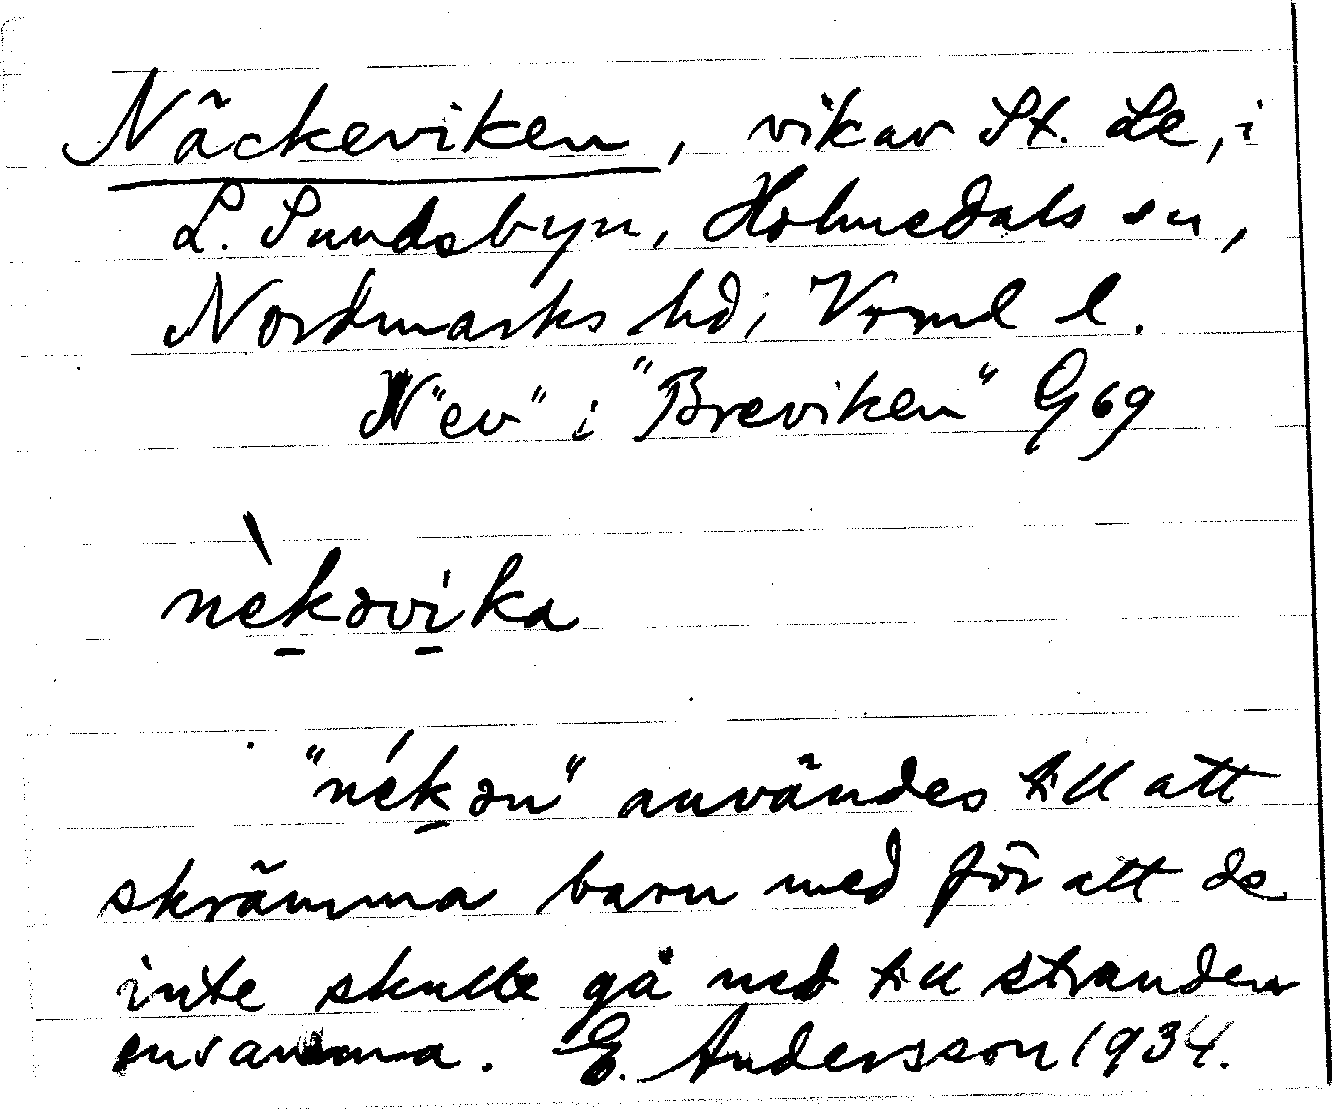 Näckeviken, vik av St. Le, i
L. Sundsbyn, Holmedals sn,
Nordmarks hd, Vrml l.
N "ev" i "Breviken" G 69
nèkəvika
"nékən" användes till att
skrämma barn med för att de
inte skulle gå ned till stranden
ensamma. E. Andersson 1934.